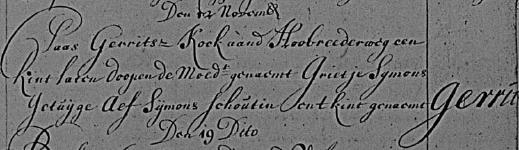 Den 12 Novemb
Claas Gerritsz Kock aand Hoobreederweg een
kint laten doopen de Moedr genaemt Grietje Symons
Getuijge Aef Sijmons Schoutin ent kint genaemt Gerrit
Den 19 Dito